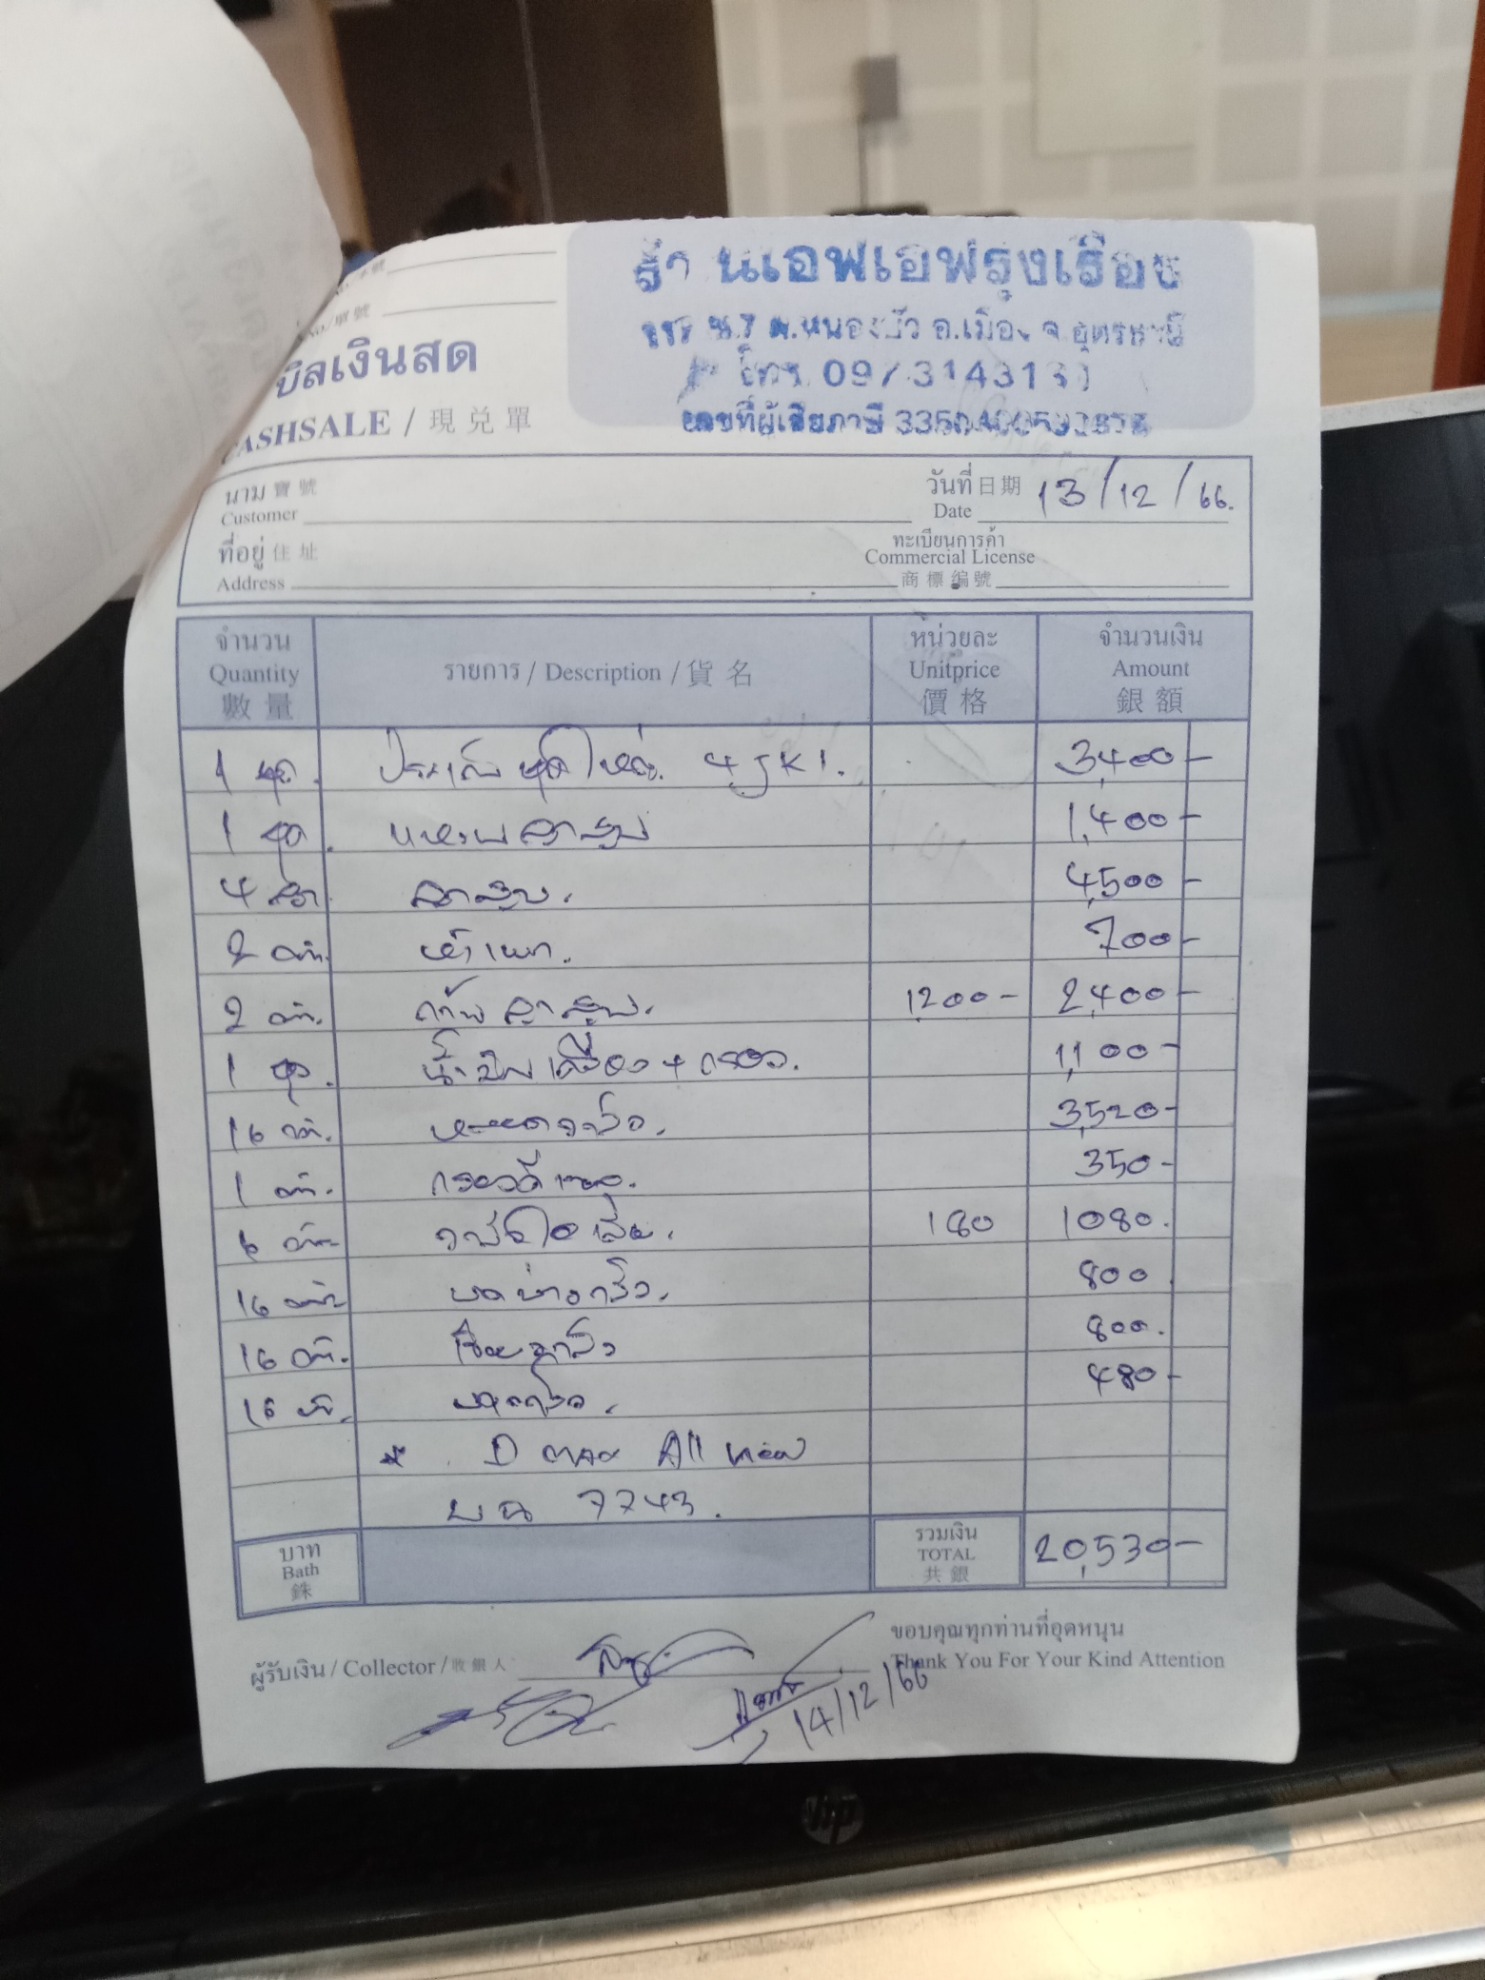 ร้านเอฟเอฟรุ่งเรือง
อ.เมือง จ.อุดรธานี
เลขที่ผู้เสียภาษี
บิลเงินสด
CASHSALE / 現兑單
นาม 寶號
Customer
วันที่ 日期 13/12/66.
Date
ที่อยู่ 住址
Address
ทะเบียนการค้า
Commercial License
商標編號
จำนวน รายการ / Description / 貨名 หน่วยละ จำนวนเงิน
Quantity Unitprice Amount
數量 價格 銀額
1 ชุด. ปะเก็นชุดใหญ่. 4JK1. 3,400-
1 ชุด. แหวนลูกสูบ 1,400-
4 ลูก ลูกสูบ. 4,500-
2 700-
2 ก้านลูกสูบ. 1,200- 2,400-
1 ชุด. น้ำมันเครื่อง+กรอง. 1,100-
16 3,520-
1 350-
6 180 1080.
16 800
16 800.
16 480-
* D max All new
บฉ 7743.
บาท
Bath
銖
รวมเงิน
TOTAL 20,530-
共銀
ผู้รับเงิน / Collector / 收銀人
ขอบคุณทุกท่านที่อุดหนุน
Thank You For Your Kind Attention
14/12/66
hp